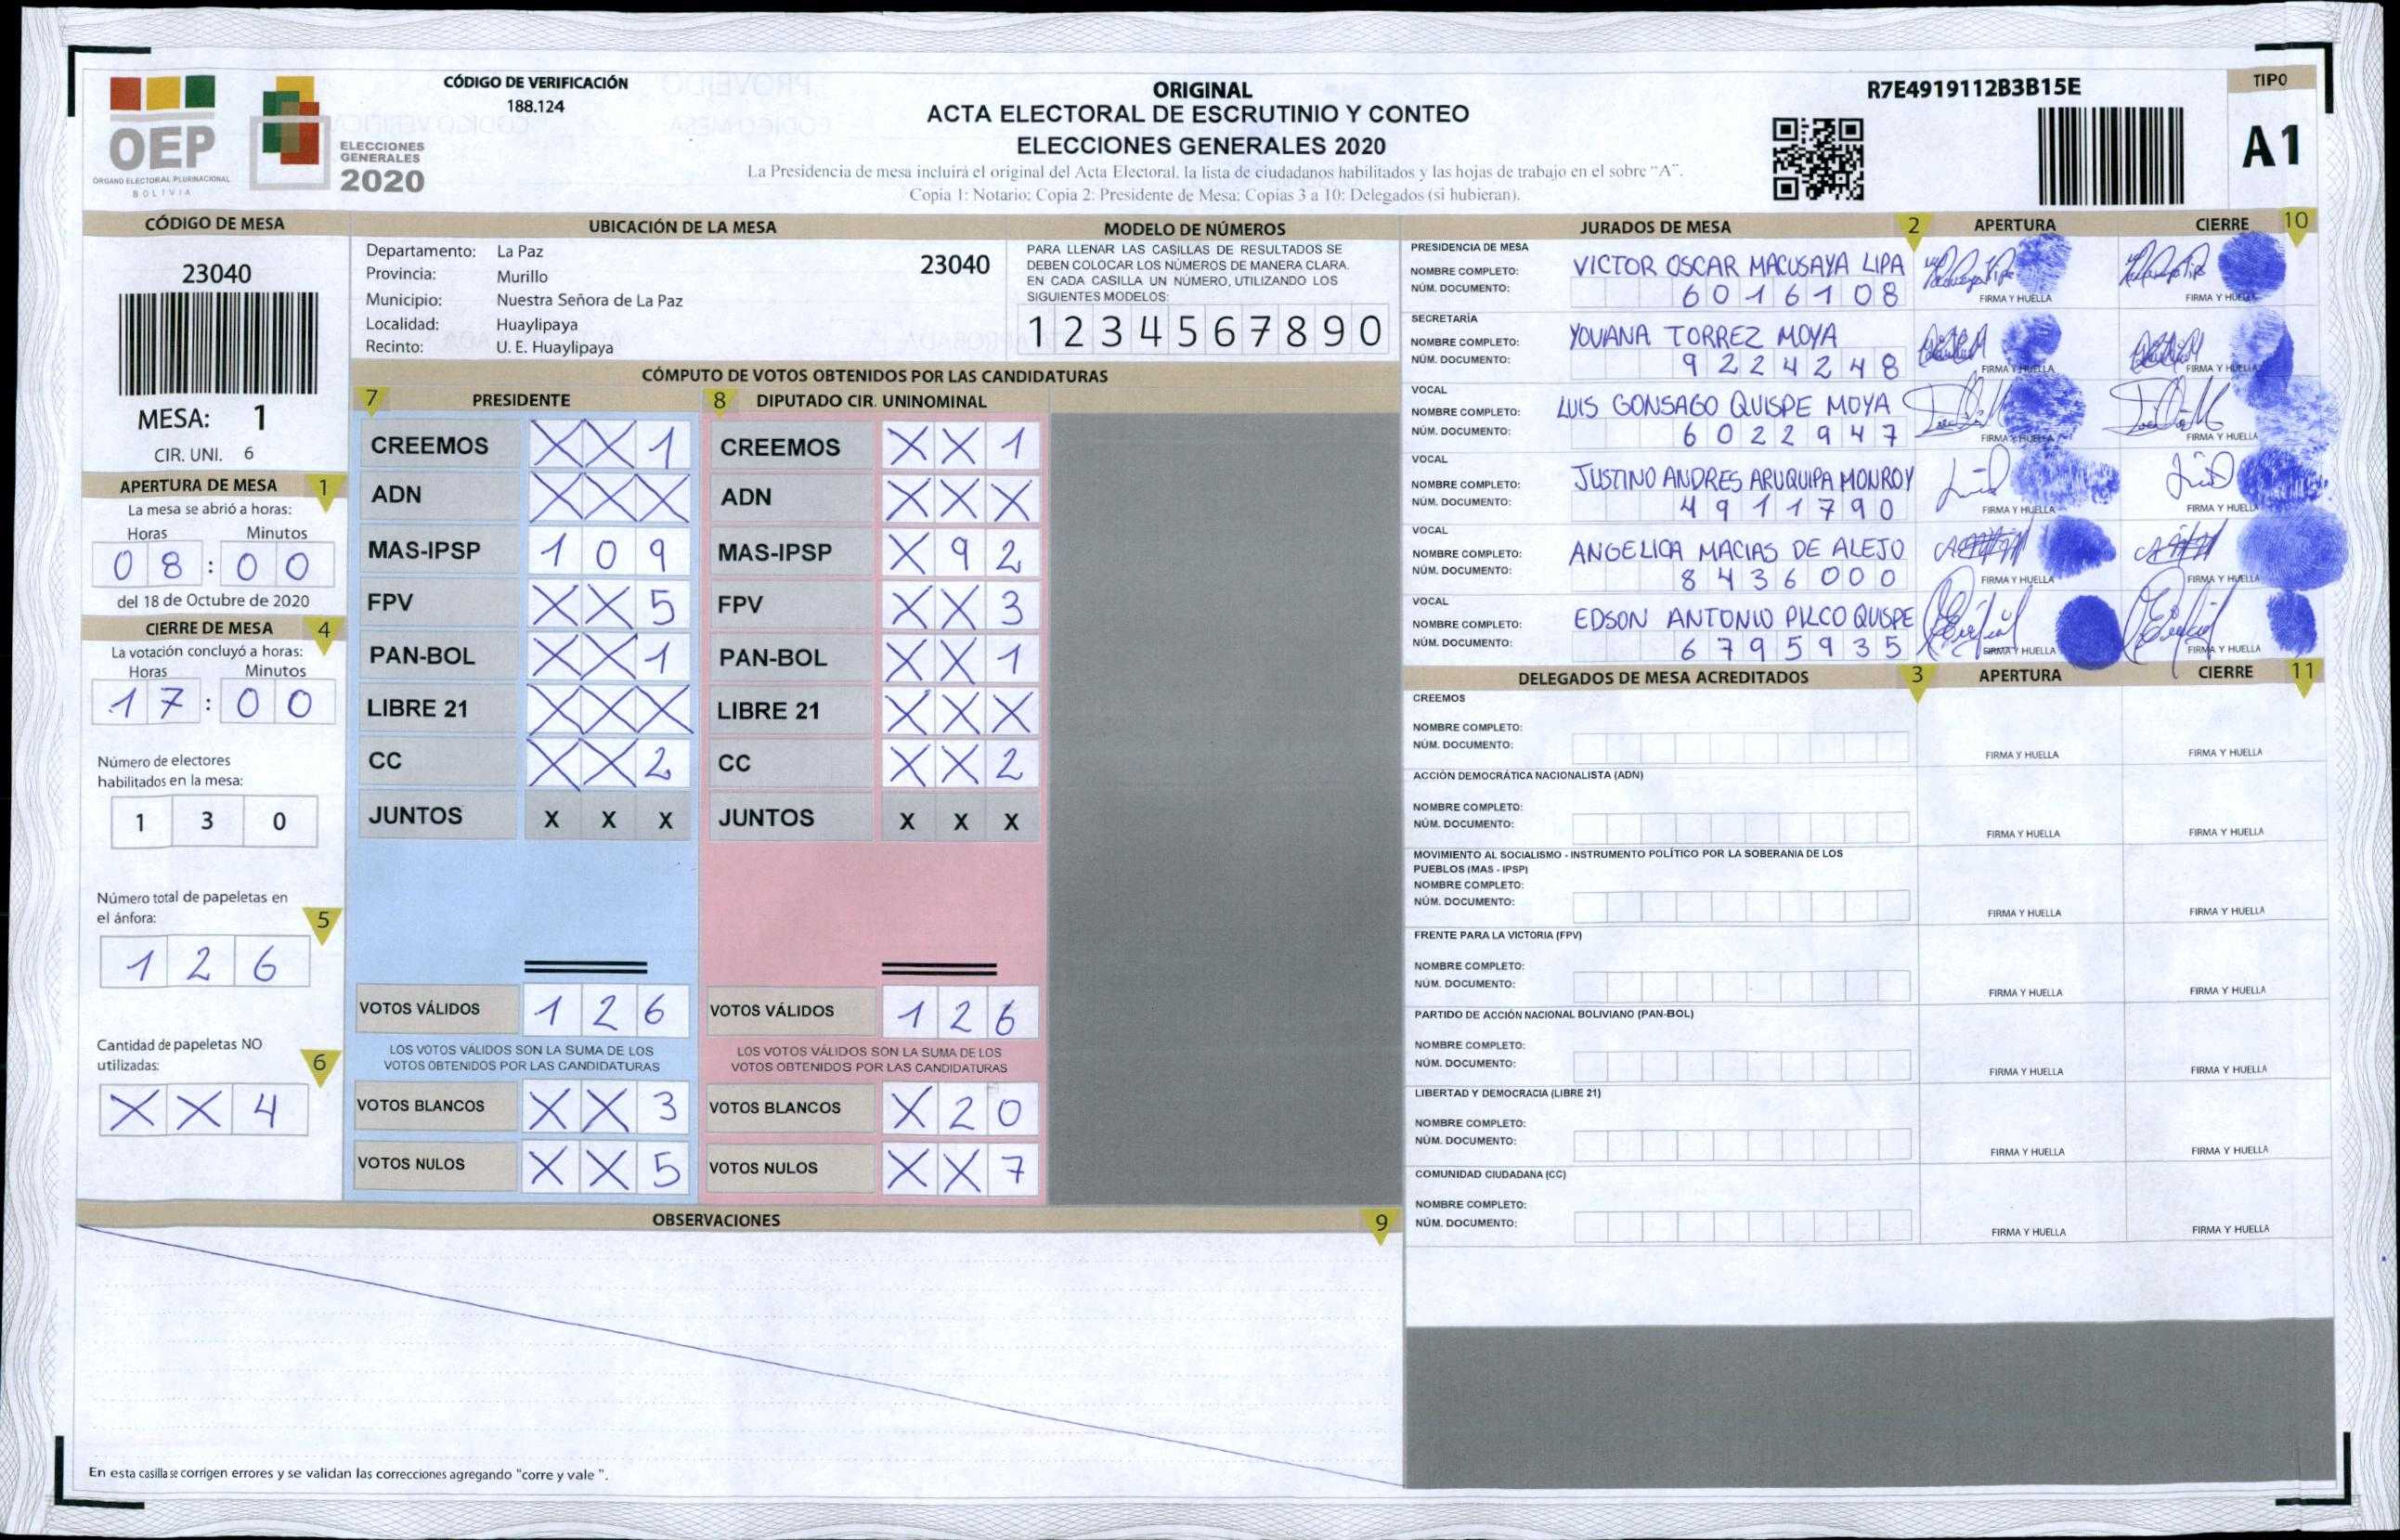 CÓDIGO DE VERIFICACIÓN
188.124
OEP
ÓRGANO ELECTORAL PLURINACIONAL
BOLIVIA
ELECCIONES
GENERALES
2020
ORIGINAL
ACTA ELECTORAL DE ESCRUTINIO Y CONTEO
ELECCIONES GENERALES 2020
La Presidencia de mesa incluirá el original del Acta Electoral, la lista de ciudadanos habilitados y las hojas de trabajo en el sobre "A".
Copia 1: Notario; Copia 2: Presidente de Mesa; Copias 3 a 10: Delegados (si hubieran).
R7E4919112B3B15E
TIPO
A1
CÓDIGO DE MESA
23040
MESA: 1
CIR. UNI. 6
APERTURA DE MESA 1
La mesa se abrió a horas:
Horas Minutos
0 8 : 0 0
del 18 de Octubre de 2020
CIERRE DE MESA 4
La votación concluyó a horas:
Horas Minutos
1 7 : 0 0
Número de electores
habilitados en la mesa:
1 3 0
Número total de papeletas en
el ánfora: 5
1 2 6
Cantidad de papeletas NO
utilizadas: 6
X X 4
UBICACIÓN DE LA MESA
Departamento: La Paz
23040
Provincia: Murillo
Municipio: Nuestra Señora de La Paz
Localidad: Huaylipaya
Recinto: U. E. Huaylipaya
MODELO DE NÚMEROS
PARA LLENAR LAS CASILLAS DE RESULTADOS SE
DEBEN COLOCAR LOS NÚMEROS DE MANERA CLARA.
EN CADA CASILLA UN NÚMERO, UTILIZANDO LOS
SIGUIENTES MODELOS:
1 2 3 4 5 6 7 8 9 0
CÓMPUTO DE VOTOS OBTENIDOS POR LAS CANDIDATURAS
7 PRESIDENTE
CREEMOS X X 1
ADN X X X
MAS-IPSP 1 0 9
FPV X X 5
PAN-BOL X X 1
LIBRE 21 X X X
CC X X 2
JUNTOS X X X
VOTOS VÁLIDOS 1 2 6
LOS VOTOS VÁLIDOS SON LA SUMA DE LOS
VOTOS OBTENIDOS POR LAS CANDIDATURAS
VOTOS BLANCOS X X 3
VOTOS NULOS X X 5
8 DIPUTADO CIR. UNINOMINAL
CREEMOS X X 1
ADN X X X
MAS-IPSP X 9 2
FPV X X 3
PAN-BOL X X 1
LIBRE 21 X X X
CC X X 2
JUNTOS X X X
VOTOS VÁLIDOS 1 2 6
LOS VOTOS VÁLIDOS SON LA SUMA DE LOS
VOTOS OBTENIDOS POR LAS CANDIDATURAS
VOTOS BLANCOS X 2 0
VOTOS NULOS X X 7
OBSERVACIONES 9
En esta casilla se corrigen errores y se validan las correcciones agregando "corre y vale ".
JURADOS DE MESA 2 APERTURA CIERRE 10
PRESIDENCIA DE MESA
NOMBRE COMPLETO: VICTOR OSCAR MACUSAYA LIPA
NÚM. DOCUMENTO: 6016108
FIRMA Y HUELLA FIRMA Y HUELLA
SECRETARÍA
NOMBRE COMPLETO: YOVANA TORREZ MOYA
NÚM. DOCUMENTO: 9224248
FIRMA Y HUELLA FIRMA Y HUELLA
VOCAL
NOMBRE COMPLETO: LUIS GONSAGO QUISPE MOYA
NÚM. DOCUMENTO: 6022947
FIRMA Y HUELLA FIRMA Y HUELLA
VOCAL
NOMBRE COMPLETO: JUSTINO ANDRES ARUQUIPA MONROY
NÚM. DOCUMENTO: 4911790
FIRMA Y HUELLA FIRMA Y HUELLA
VOCAL
NOMBRE COMPLETO: ANGELICA MACIAS DE ALEJO
NÚM. DOCUMENTO: 8436000
FIRMA Y HUELLA FIRMA Y HUELLA
VOCAL
NOMBRE COMPLETO: EDSON ANTONIO PILCO QUISPE
NÚM. DOCUMENTO: 6795935
FIRMA Y HUELLA FIRMA Y HUELLA
DELEGADOS DE MESA ACREDITADOS 3 APERTURA CIERRE 11
CREEMOS
NOMBRE COMPLETO:
NÚM. DOCUMENTO:
FIRMA Y HUELLA FIRMA Y HUELLA
ACCIÓN DEMOCRÁTICA NACIONALISTA (ADN)
NOMBRE COMPLETO:
NÚM. DOCUMENTO:
FIRMA Y HUELLA FIRMA Y HUELLA
MOVIMIENTO AL SOCIALISMO - INSTRUMENTO POLÍTICO POR LA SOBERANIA DE LOS
PUEBLOS (MAS - IPSP)
NOMBRE COMPLETO:
NÚM. DOCUMENTO:
FIRMA Y HUELLA FIRMA Y HUELLA
FRENTE PARA LA VICTORIA (FPV)
NOMBRE COMPLETO:
NÚM. DOCUMENTO:
FIRMA Y HUELLA FIRMA Y HUELLA
PARTIDO DE ACCIÓN NACIONAL BOLIVIANO (PAN-BOL)
NOMBRE COMPLETO:
NÚM. DOCUMENTO:
FIRMA Y HUELLA FIRMA Y HUELLA
LIBERTAD Y DEMOCRACIA (LIBRE 21)
NOMBRE COMPLETO:
NÚM. DOCUMENTO:
FIRMA Y HUELLA FIRMA Y HUELLA
COMUNIDAD CIUDADANA (CC)
NOMBRE COMPLETO:
NÚM. DOCUMENTO:
FIRMA Y HUELLA FIRMA Y HUELLA